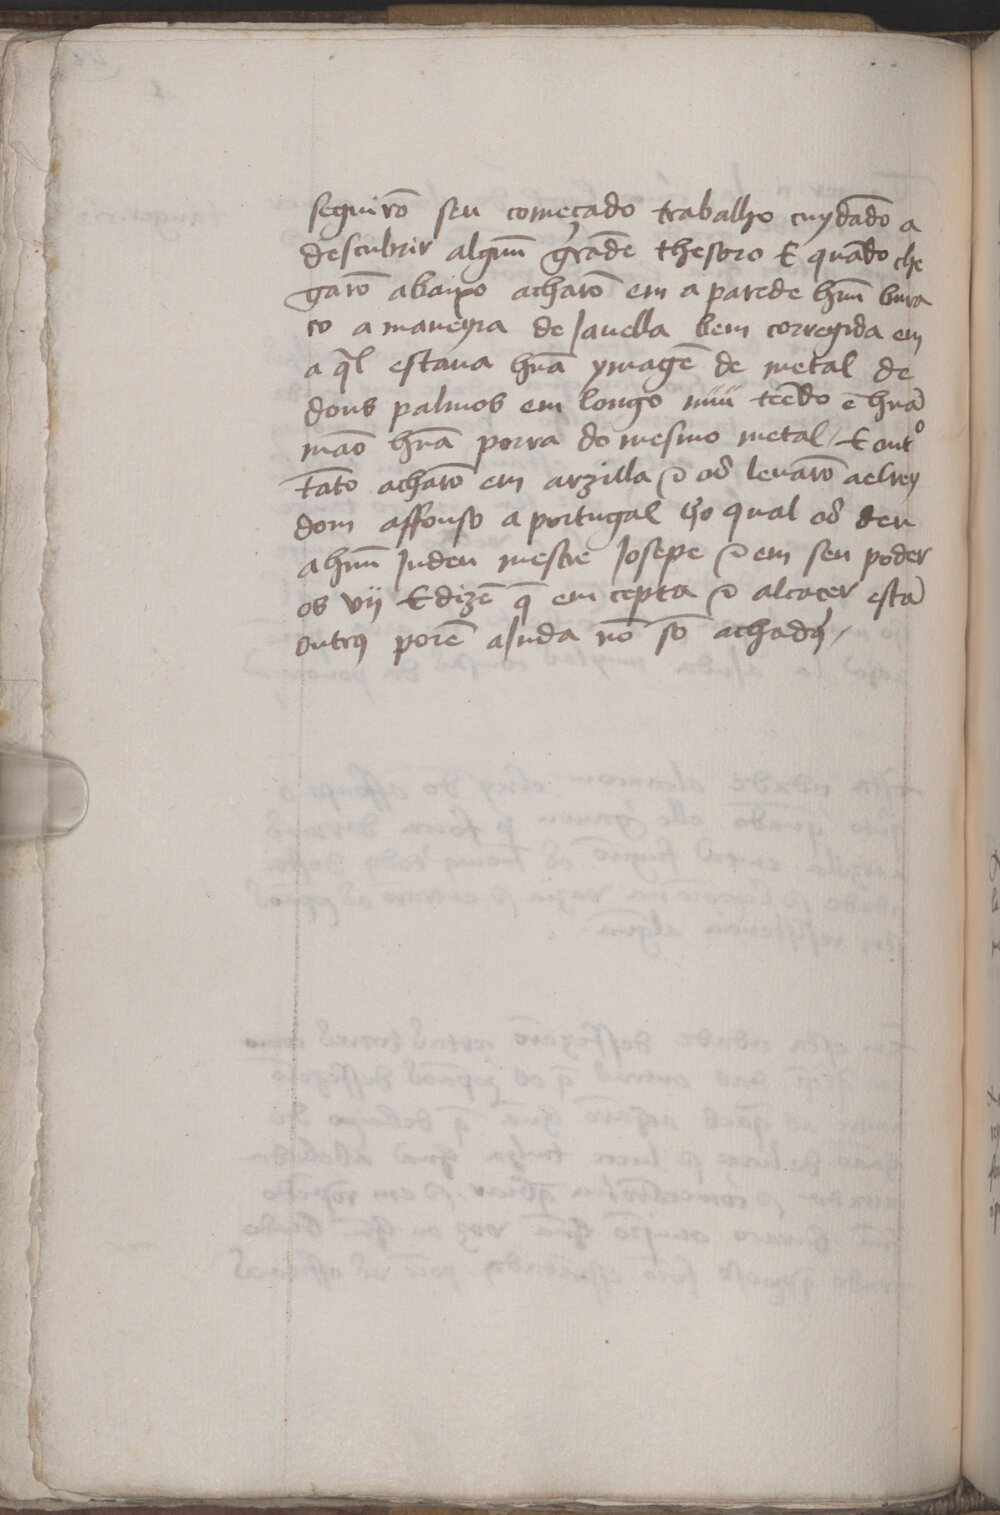 seguirõ seu começado trabalho cuydãdo a
descubrir algũu grãde thesoro E quãdo che
garõ abaixo acharõ em a parede hũu bura
co a maneyra de Janella bem corregida em
a q̃l estaua hũa ymagẽ de metal de
dous palmos em longo nuu tẽedo ẽ hũa
maão hũa porra do mesmo metal / E outº
tãto acharõ em arzilla ⁊ os leuarõ aelrey
dom affonso a portugal ho qual os deu
a hũu Judeu mestre Josepe ⁊ em seu poder
os vij E dizẽ q̃ em cepta ⁊ alcacer estã
outrꝯ porẽ aJnda nõ sõ achadꝯ /